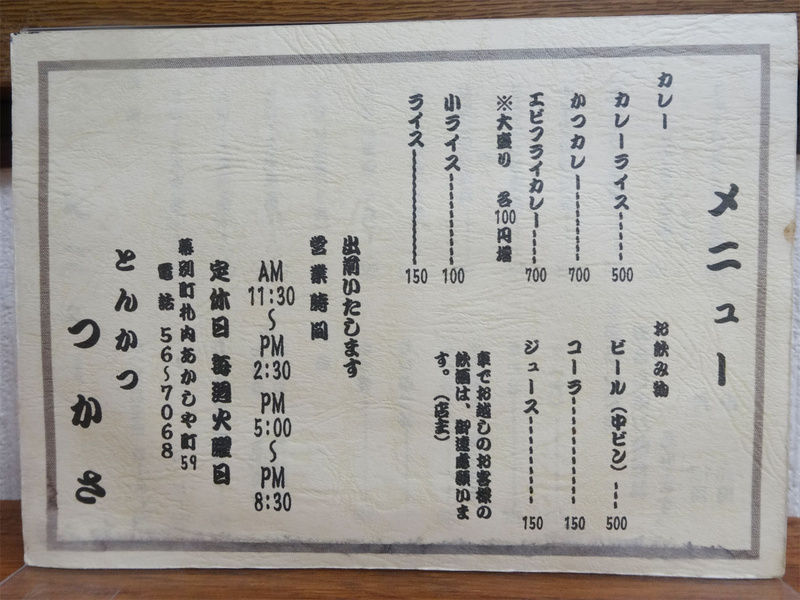 メニュー
カレー
カレーライス 500
かつカレー 700
エビフライカレー 700
※大盛り 各100円増
小ライス 100
ライス 150
お飲み物
ビール（中ビン） 500
コーラ 150
ジュース 150
車でお越しのお客様の
飲酒は、御遠慮願いま
す。（店主）
出前いたします
営業時間
AM 11:30 〜 PM 2:30
PM 5:00 〜 PM 8:30
定休日 毎週火曜日
幕別町札内あかしや町59
電話 56〜7068
とんかつ
つかさ